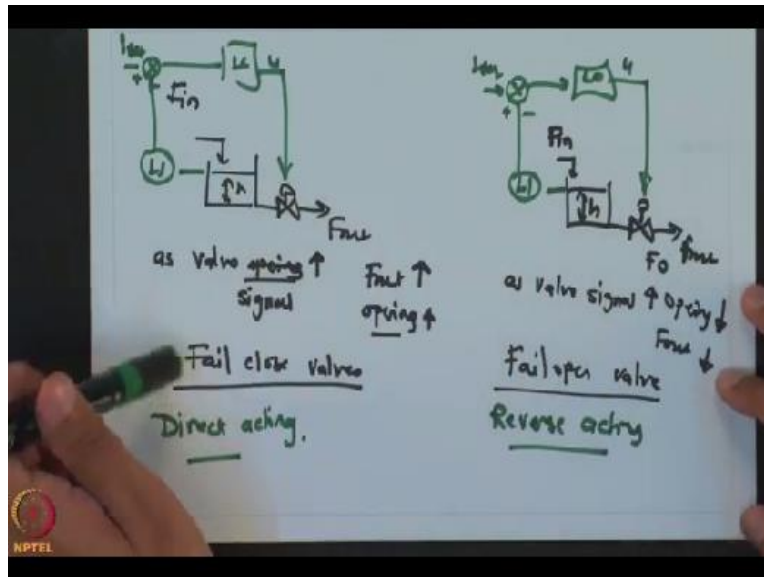 Fin
LC u
LI
h
Fout
as valve opening ↑
signal
Fout ↑
opening ↑
Fail close valves
Direct acting.
u
Fin
LI
h
Fo Fout
as valve signal ↑ opening ↓
Fout ↓
Fail open valve
Reverse acting
NPTEL